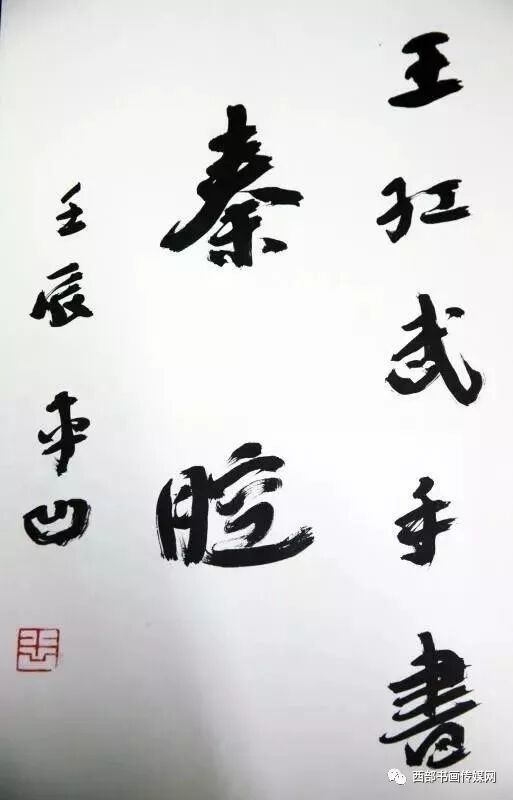 王红武手書
秦腔
壬辰平凹
西部书画传媒网